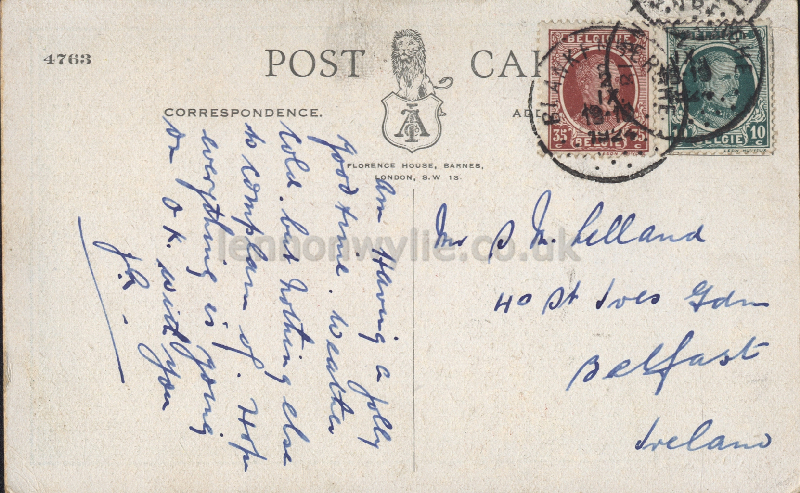 4763
POST CA
CORRESPONDENCE.
FLORENCE HOUSE, BARNES,
LONDON, S.W 13.
BELGIQUE
35 c
BELGIE
10
1924
Am Having a jolly
good time. Weather
cold. but nothing else
to complain of. Hope
everything is going
O.K. with you
Mr S McClelland
40 St Ives Gdns
Belfast
Ireland
lennonwylie.co.uk